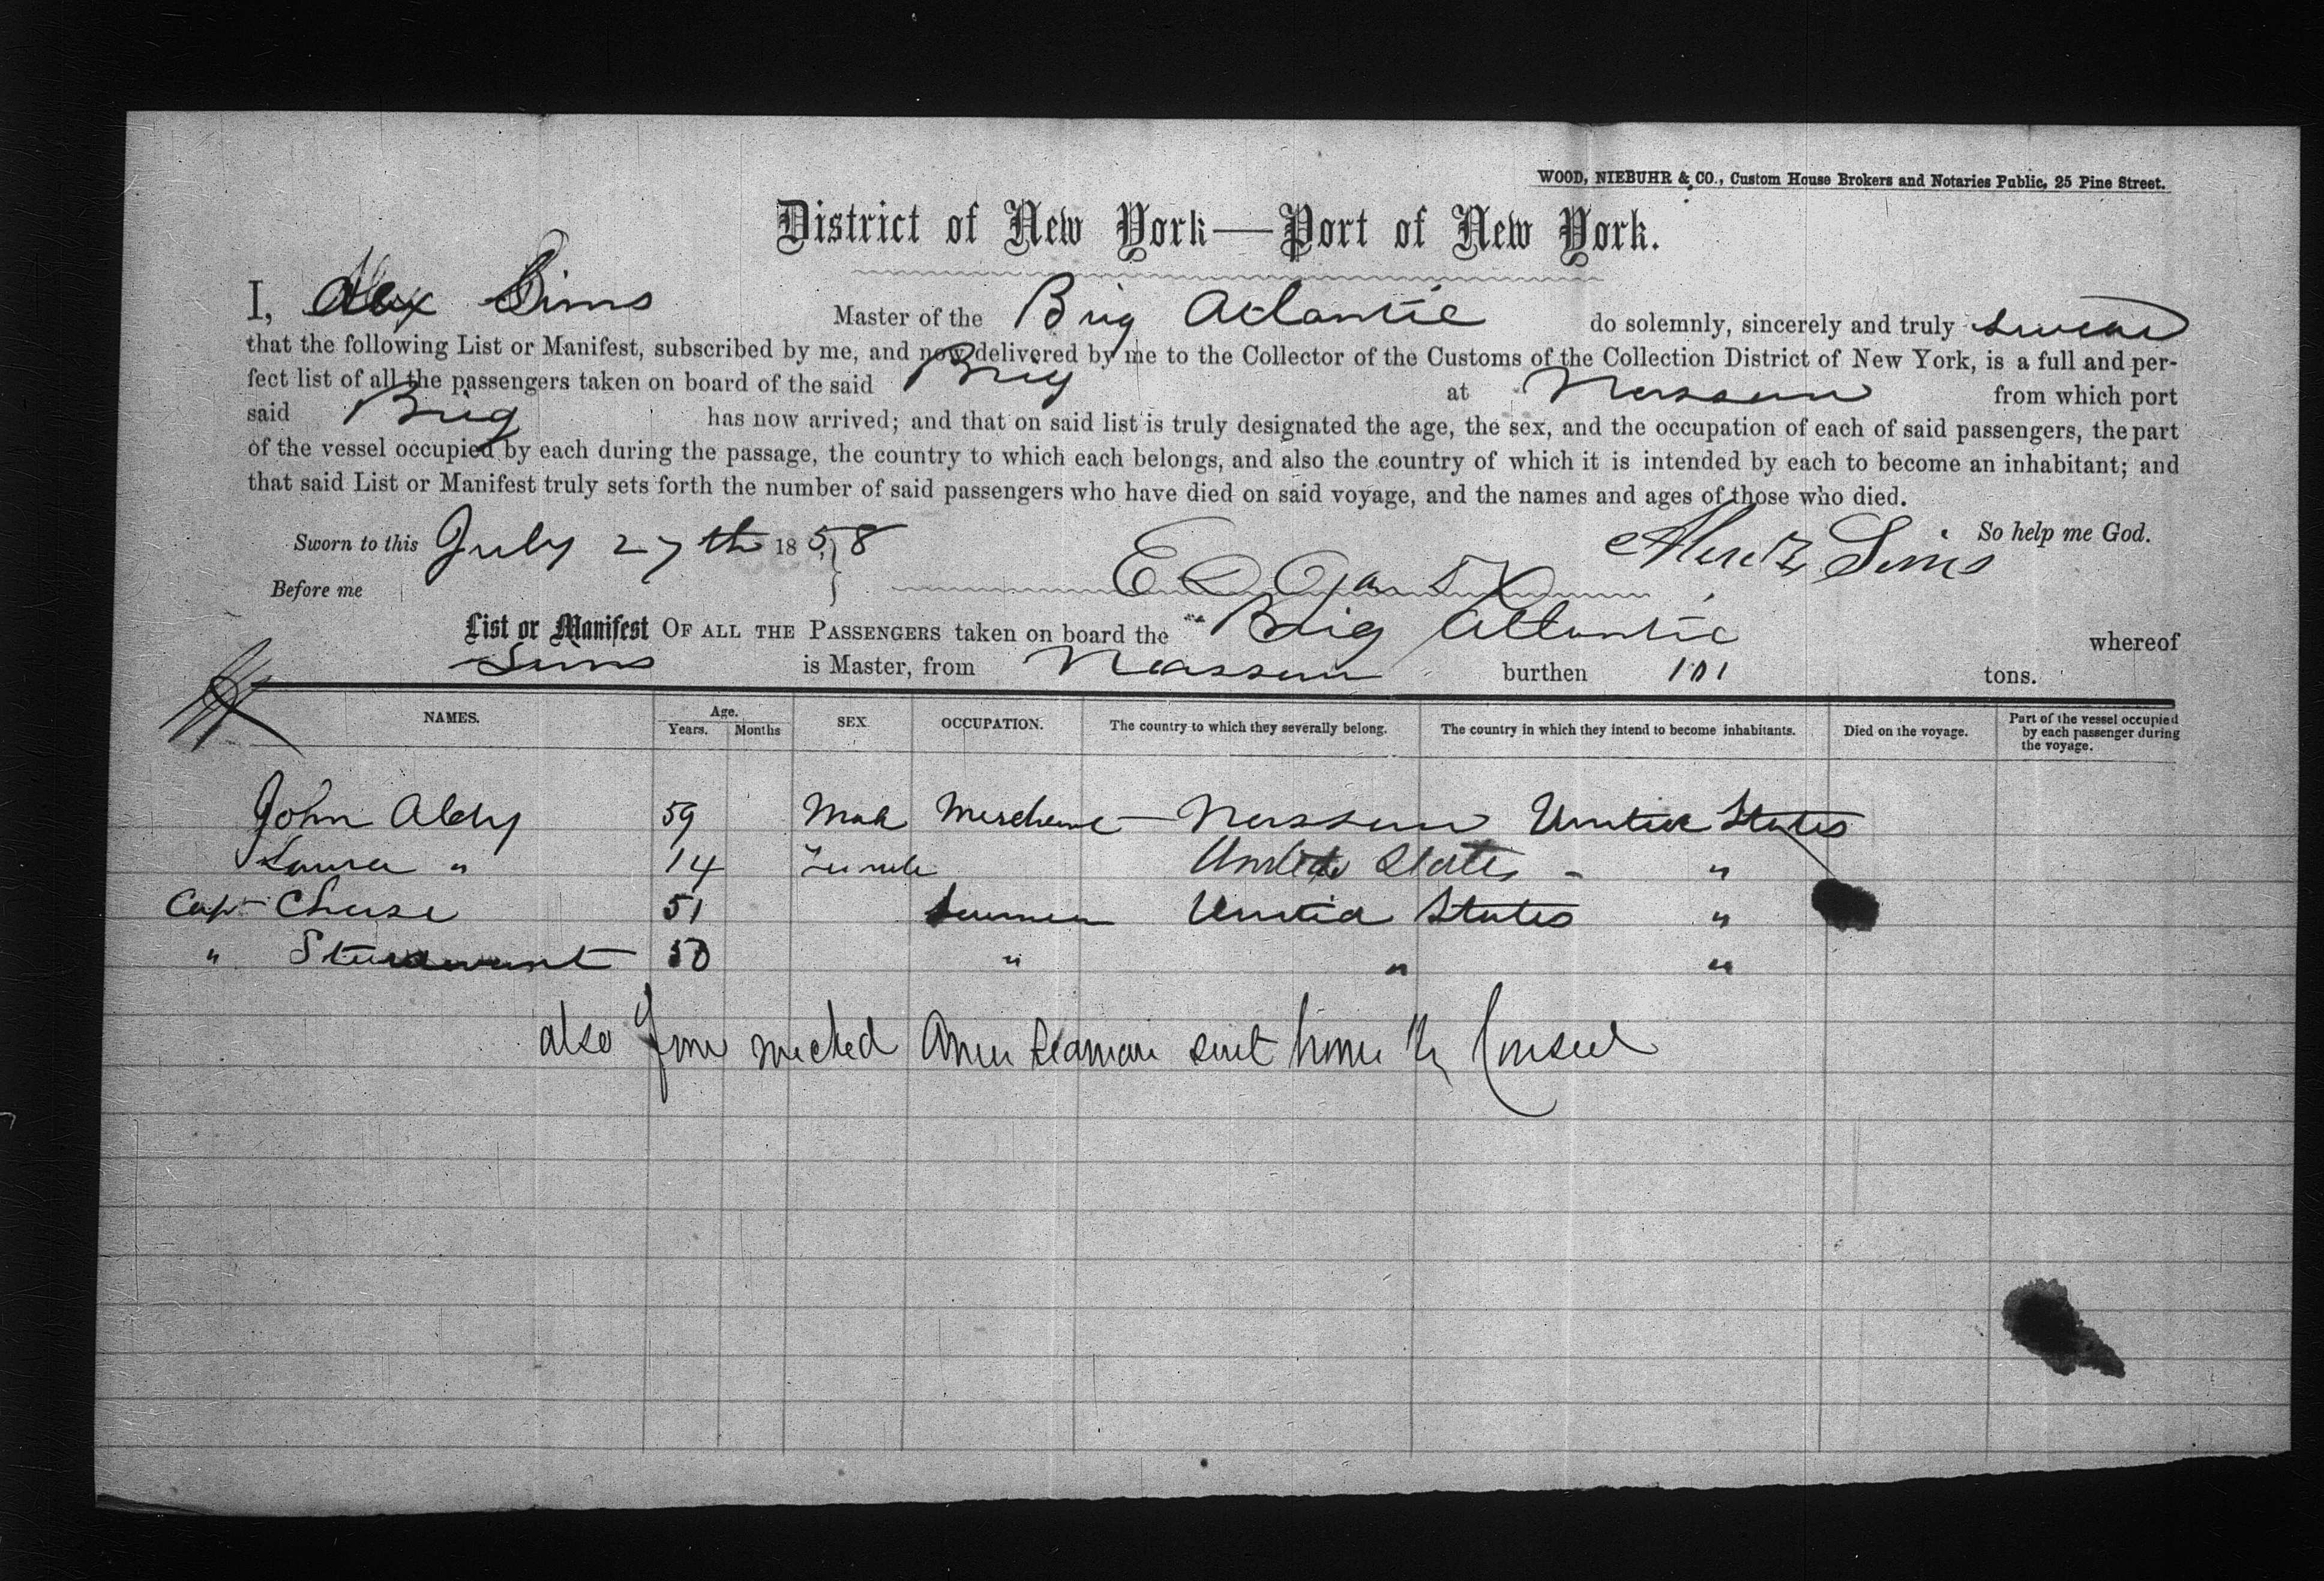 WOOD, NIEBUHR & CO., Custom House Brokers and Notaries Public, 25 Pine Street.
District of New York—Port of New York.
I, Alex Sims Master of the Brig Atlantic do solemnly, sincerely and truly swear
that the following List or Manifest, subscribed by me, and now delivered by me to the Collector of the Customs of the Collection District of New York, is a full and per-
fect list of all the passengers taken on board of the said Brig at Nassau from which port
said Brig has now arrived; and that on said list is truly designated the age, the sex, and the occupation of each of said passengers, the part
of the vessel occupied by each during the passage, the country to which each belongs, and also the country of which it is intended by each to become an inhabitant; and
that said List or Manifest truly sets forth the number of said passengers who have died on said voyage, and the names and ages of those who died.
Sworn to this July 27th 1858 So help me God.
Before me Sims
List or Manifest OF ALL THE PASSENGERS taken on board the Brig Atlantic whereof
Sims is Master, from Nassau burthen 101 tons.
NAMES. Age. Years. Months SEX OCCUPATION. The country to which they severally belong. The country in which they intend to become inhabitants. Died on the voyage. Part of the vessel occupied by each passenger during the voyage.
John Aldy 59 Male Merchant Nassau United States
Laura " 14 Female United States - "
Capt Chase 51 Seaman United States "
" Sturdevant 50 " " "
also wrecked Amer Seamen sent home by Consul